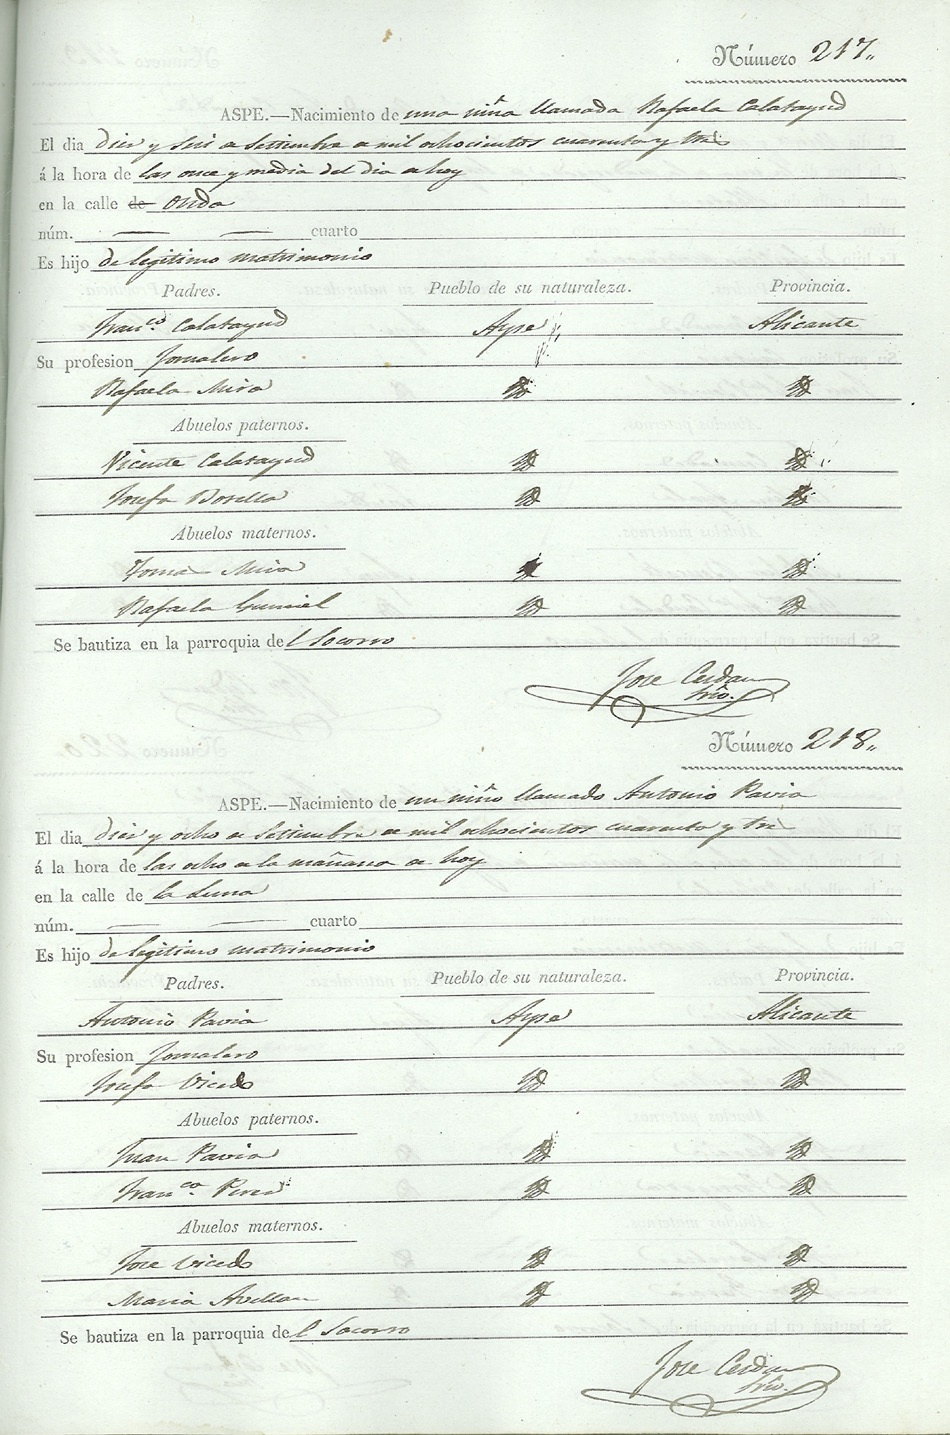 Número 217.
ASPE.—Nacimiento de una niña llamada Rafaela Calatayud
El dia diez y seis de Settimbre de mil ochocientos cuarenta y tres
á la hora de las once y media del dia de hoy
en la calle de Onda
núm. — — cuarto
Es hijo de legitimo matrimonio
Padres. Pueblo de su naturaleza. Provincia.
Franco. Calatayud Aspe Alicante
Su profesion Jornalero
Rafaela Mira
Abuelos paternos.
Vicente Calatayud
Josefa Botella
Abuelos maternos.
Tomas Mira
Rafaela Gumiel
Se bautiza en la parroquia del Socorro
Jose Cerdan
Srio.
Número 218.
ASPE.—Nacimiento de un niño llamado Antonio Pavia
El dia diez y ocho de Settimbre de mil ochocientos cuarenta y tres
á la hora de las ocho de la mañana de hoy
en la calle de la Luna
núm. — — cuarto
Es hijo de legitimo matrimonio
Padres. Pueblo de su naturaleza. Provincia.
Antonio Pavia Aspe Alicante
Su profesion Jornalero
Josefa Vicedo
Abuelos paternos.
Juan Pavia
Franca. Perez
Abuelos maternos.
Jose Vicedo
Maria Avellan
Se bautiza en la parroquia del Socorro
Jose Cerdan
Srio.